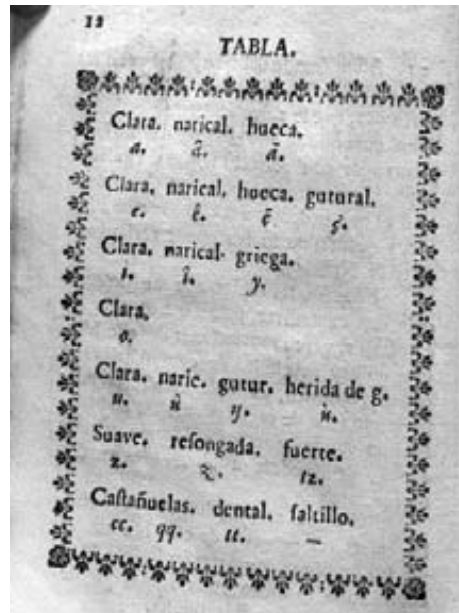 12
TABLA.
Clara. narical. hueca.
a. â. ã.
Clara, narical, hueca. gutural.
e. ê. ẽ
Clara. narical. griega.
i. î. y.
Clara.
o.
Clara. naric. gutur. herida de g.
u.
Suave. resongada. fuerte.
z. tz.
Castañuelas. dental. saltillo.
cc. qq. tt. —